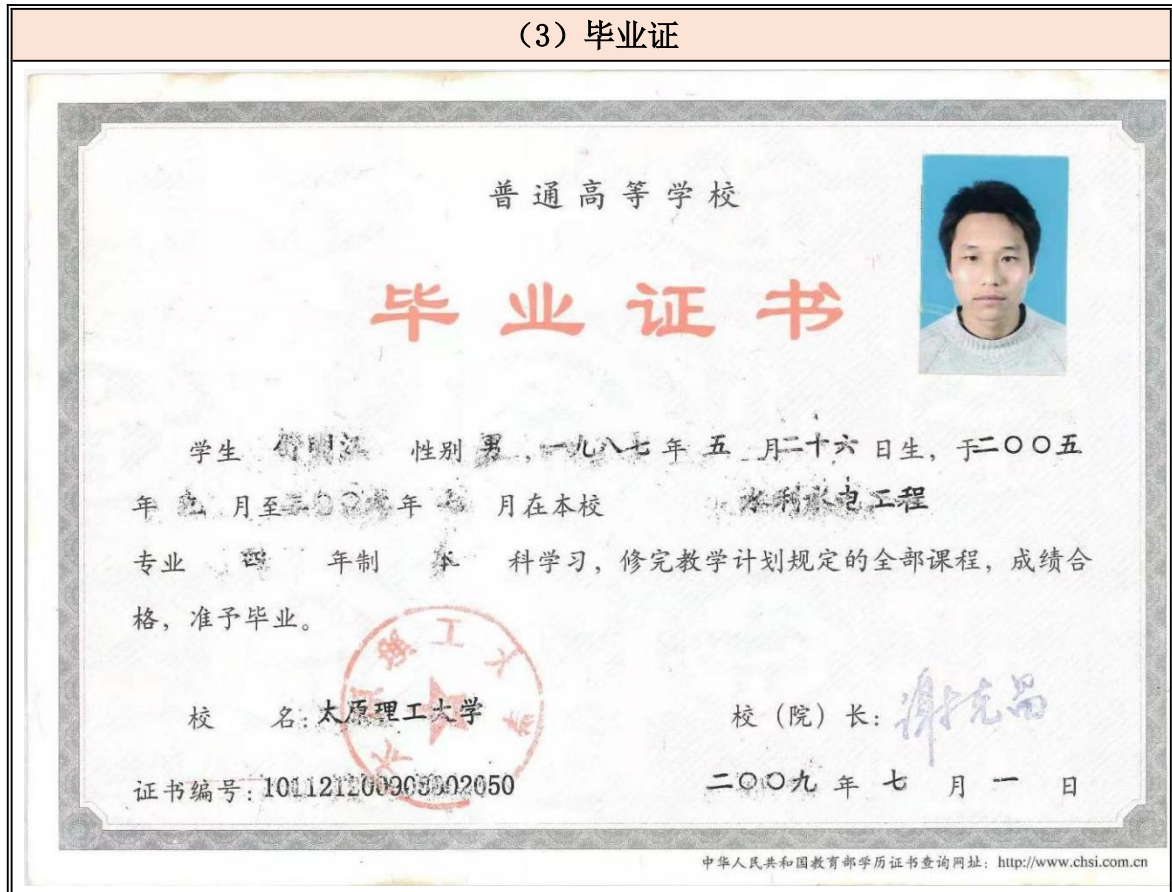 （3）毕业证
普通高等学校
毕业证书
学生 明江 性别 男，一九八七年 五 月二十六日生，于二〇〇五
年 九 月至二〇〇九年 七 月在本校 水利水电工程
专业 四 年制 本 科学习，修完教学计划规定的全部课程，成绩合
格，准予毕业。
校 名：太原理工大学 校（院）长：谢克昌
证书编号： 二〇〇九 年 七 月 一 日
中华人民共和国教育部学历证书查询网址：http://www.chsi.com.cn